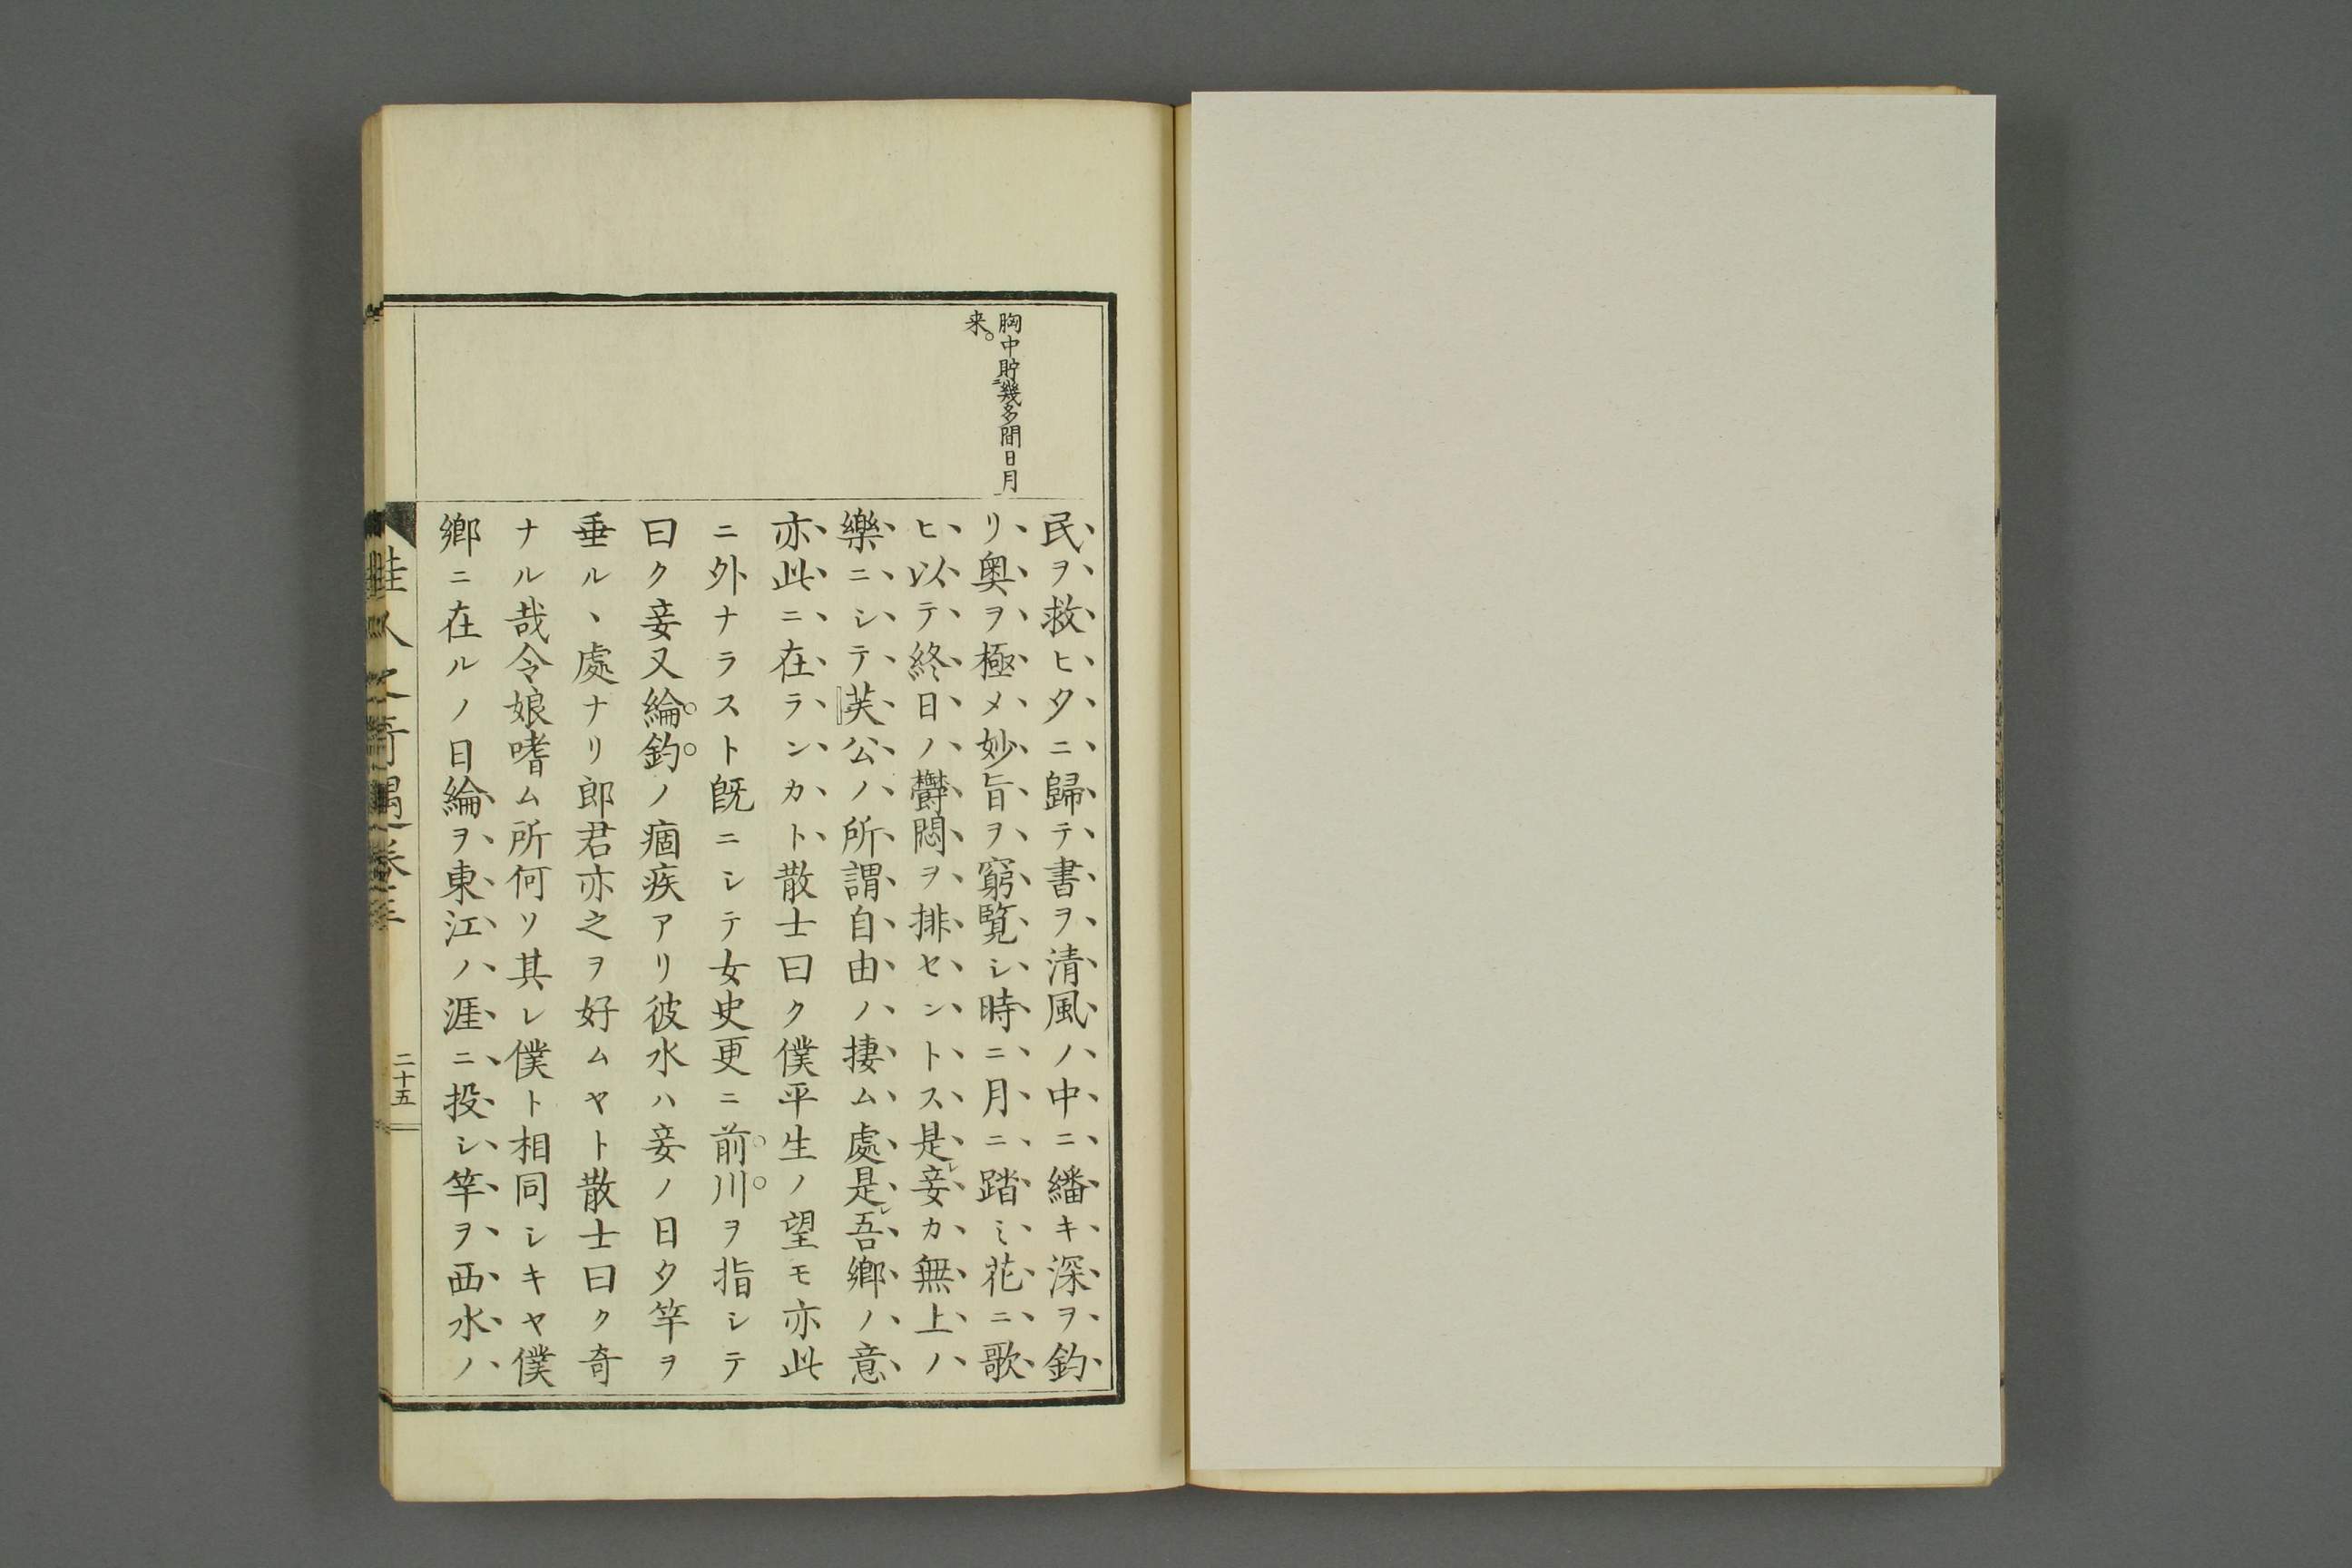 胸中貯幾多間日月
来。
民ヲ救ヒ夕ニ歸テ書ヲ清風ノ中ニ繙キ深ヲ釣
リ奧ヲ極メ妙旨ヲ窮覽シ時ニ月ニ踏ミ花ニ歌
ヒ以テ終日ノ欝悶ヲ排セントス是レ妾カ無上ノ
樂ニシテ芙公ノ所謂自由ノ捿ム處是レ吾鄉ノ意
亦此ニ在ランカト散士曰ク僕平生ノ望モ亦此
ニ外ナラスト旣ニシテ女史更ニ前川ヲ指シテ
曰ク妾又綸釣ノ痼疾アリ彼水ハ妾ノ日夕竿ヲ
垂ルヽ處ナリ郎君亦之ヲ好ムヤト散士曰ク奇
ナル哉令娘嗜ム所何ソ其レ僕ト相同シキヤ僕
鄉ニ在ルノ日綸ヲ東江ノ涯ニ投シ竿ヲ西水ノ
佳人之奇遇卷三
二十五